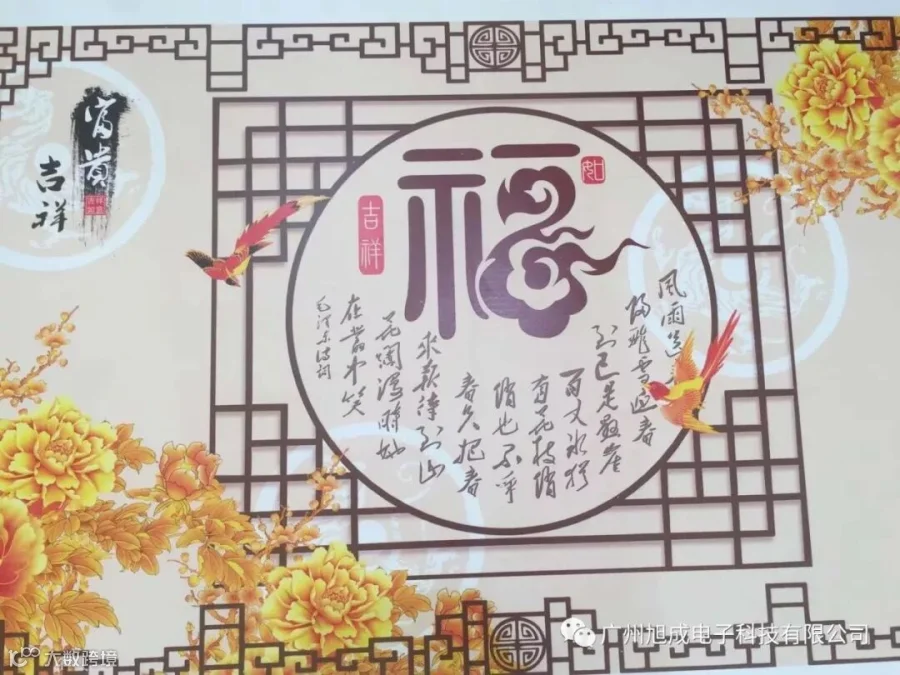 富貴
吉祥
福
如
吉祥
風雨送
歸飛雪迎春
到已是懸崖
百丈冰猶
有花枝俏
俏也不争
春只把春
来報待到山
花爛漫時她
在叢中笑
毛泽东诗词
广州旭成电子科技有限公司
大数跨境